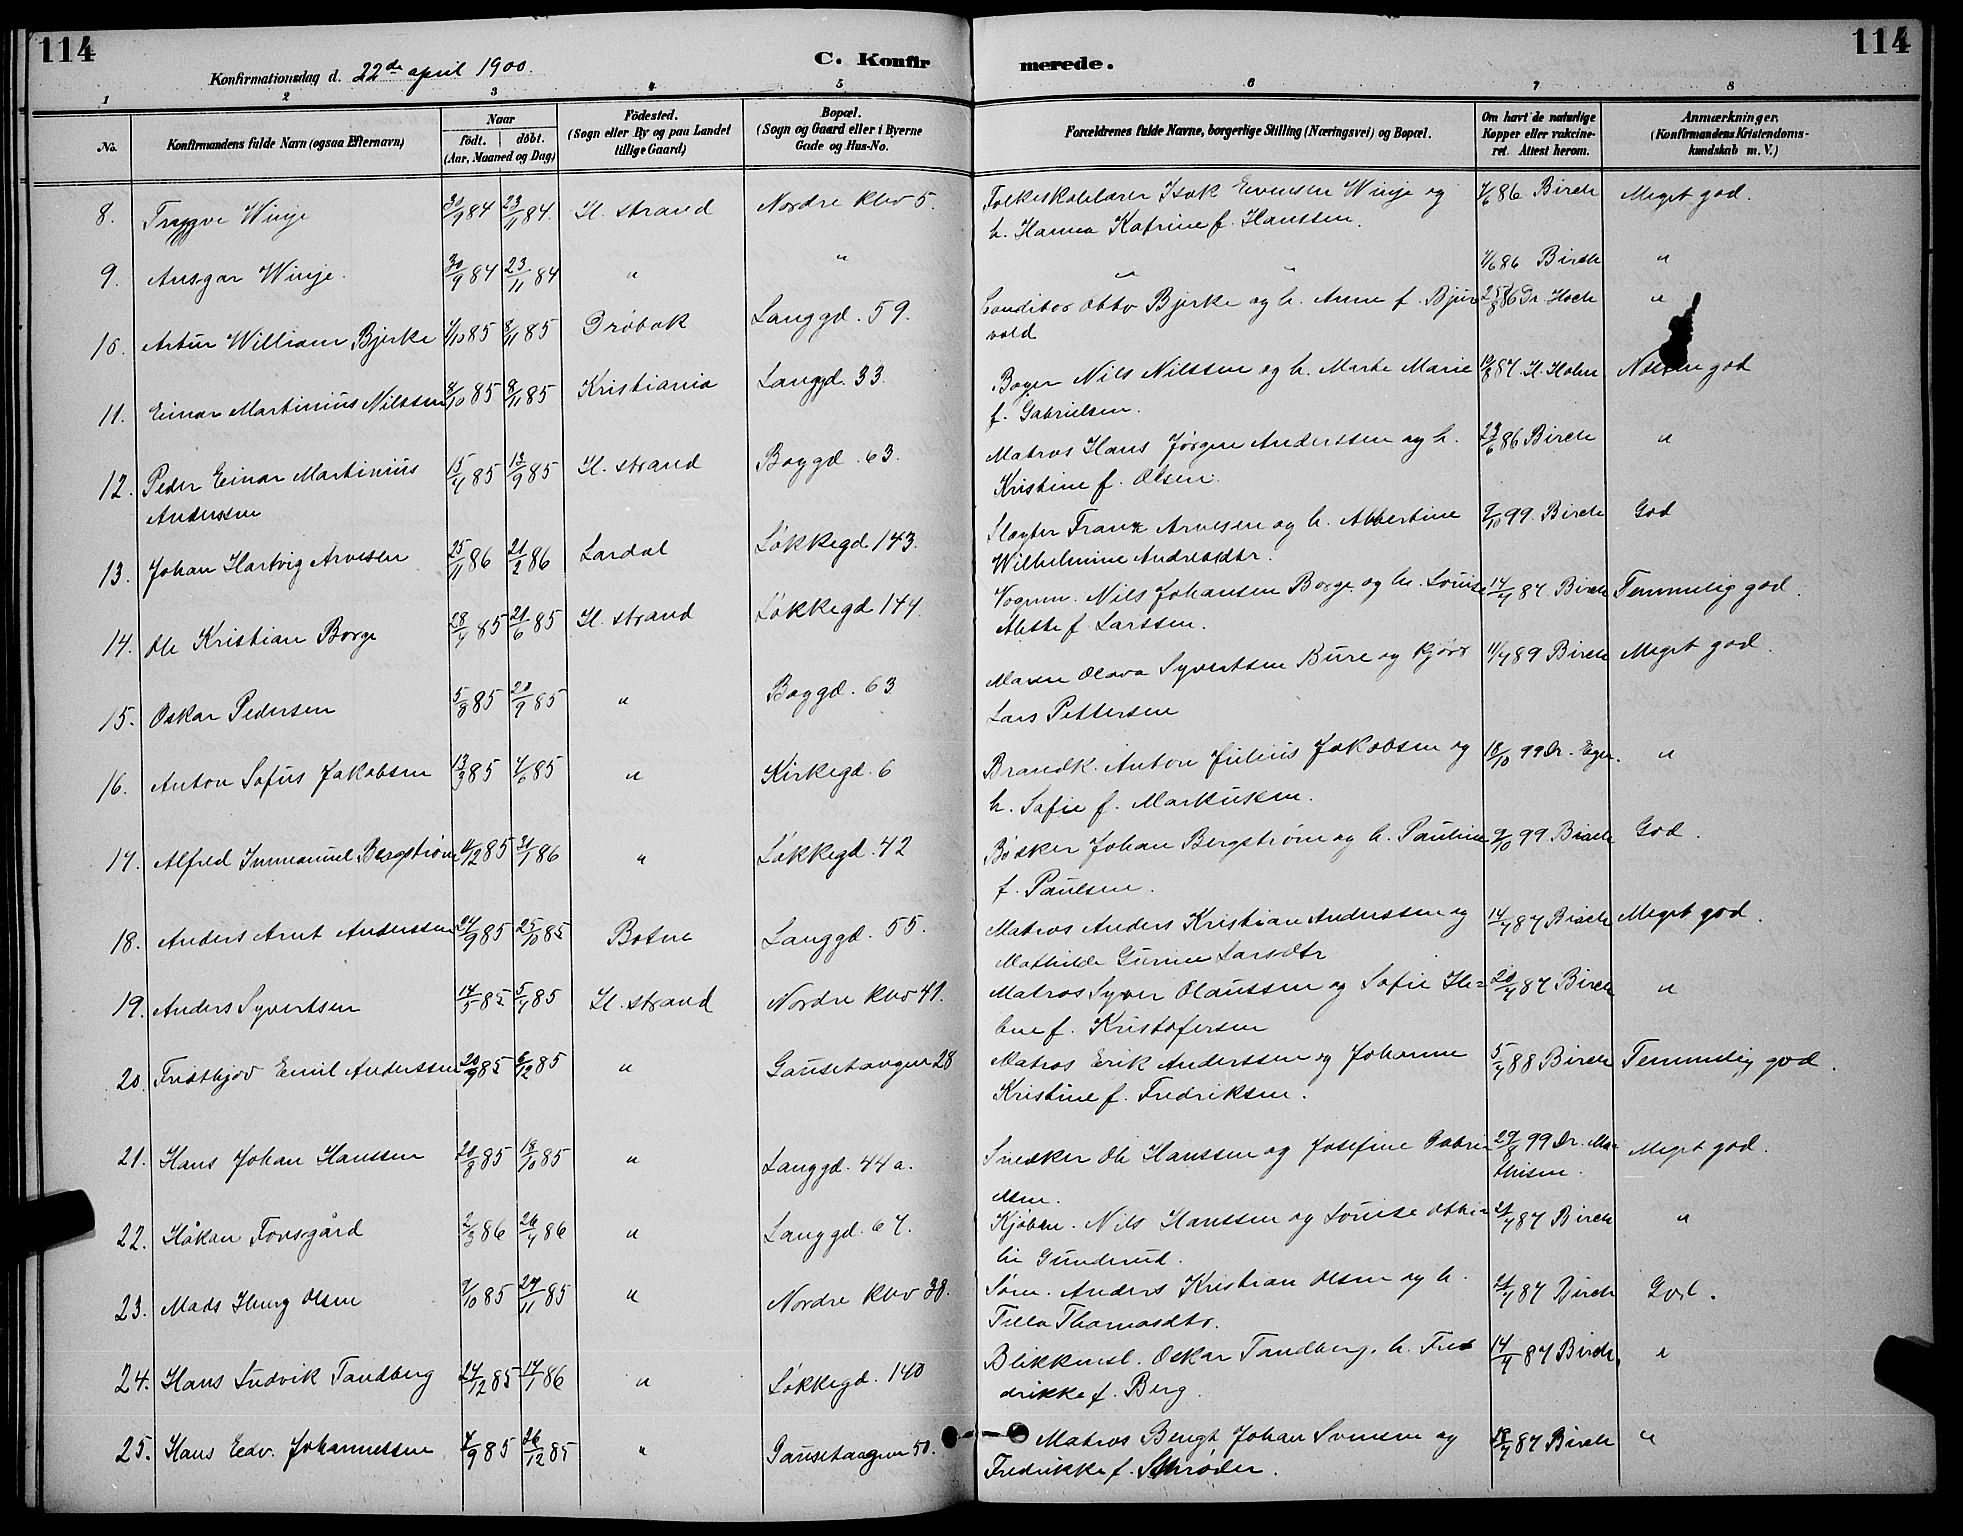 114
114
C. Konfirmerede.
Konfirmationsdag d. 22de april 1900.
1 2 3 4 5 6 7 8
No.
Konfirmandens fulde Navn (ogsaa Efternavn)
Naar
födt. döbt.
(Aar, Maaned og Dag)
Födested.
(Sogn eller By og paa Landet
tillige Gaard)
Bopæl.
(Sogn og Gaard eller i Byerne
Gade og Hus-No.
Forældrenes fulde Navne, borgerlige Stilling (Næringsvei) og Bopæl.
Om havt de naturlige
Kopper eller vakcine-
ret. Attest herom.
Anmærkninger.
(Konfirmandens Kristendoms-
kundskab m. V.)
8. Tryggve Winje 30/9 84 23/11 84. H. strand Nordre klev 5. Folkeskolelærer Isak Evensen Winje og 7/6 86 Birch Meget god.
h. Hanna Katrine f. Hanssen.
9. Ansgar Winje. 30/9 84 23/11 84 " " " " 7/6 86 Birch "
10. Artur William Bjerke 7/10 85 8/11 85 Drøbak Langgd. 59. Conditor Otto Bjerke og h. Anne f. Bjur 25/8 86 Dr. Hoch "
vold
11. Einar Martinius Nilssen 8/10 85 8/11 85 Kristiania Langgd. 33. Bager Nils Nilssen og h. Marte Marie 87 H. Holm god
f. Gabrielsen.
12. Peder Einar Martinius 15/7 85 13/9 85 H. strand Baggd. 63. Matros Hans Jørgen Anderssen og h. 23/6 86 Birch "
Anderssen Kristine f. Olsen.
13. Johan Hartvig Arvesen 25/11 86 21/2 86 Lardal Løkkegd. 143. Slagter Franz Arvesen og h. Albertine 9/10 99. Birch God
Wilhelmine Andreasdtr.
14. Ole Kristian Borge 28/4 85 21/6 85 H. strand Løkkegd 144. Vognm. Nils Johansen Borge og h. Louise 14/7 87. Birch Temmelig god.
Alette f. Larssen.
15. Oskar Pedersen 5/8 85 20/9 85 " Baggd. 63 Maren Olava Syvertsen Bure og 11/7 89 Birch Meget god.
Lars Pettersen
16. Anton Sofus Jakobsen 13/3 85 85 " Kirkegd. 6 Brandk. Anton Julius Jakobsen og 18/10 99 Dr. Eger. "
h. Sofie f. Markussen.
17. Alfred Immanuel Bergstrøm /12 85 31/1 86 " Løkkegd. 42 Bødker Johan Bergstrøm og h. Pauline 9/10 99 Birch God.
f. Paulsen.
18. Anders Arnt Anderssen 27/9 85 25/10 85 Botne Langgd. 55. Matros Anders Kristian Anderssen og 14/7 87 Birch Meget god.
Mathilde Gurine Larsdtr
19. Anders Syvertsen 14/5 85 5/7 85 H. strand Nordre klev 41. Matros Syver Olaussen og Sofie He= 20/7 87 Birch "
lene f. Kristofersen
20. Fridthjov Emil Anderssen 20/9 85 6/12 85 " Gausetangen 28 Matros Erik Anderssen og Johanne 5/7 88 Birch Temmelig god.
Kristine f. Fredriksen.
21. Hans Johan Hanssen 20/8 85 18/10 85 " Langgd. 44a. Snedker Ole Hanssen og Josefine Gabri 29/8 99 Dr. Ma-
elsen. thisen. Meget god.
22. Håkan Forsgård 2/3 86 26/4 86 " Langgd. 67. Kjøbm. Nils Hanssen og Louise Othi= 21/7 87 Birch "
lie Gunderud.
23. Mads Iburg Olsen 9/10 85 27/11 85 " Nordre klev 38. Søm. Anders Kristian Olsen og h. 21/7 87 Birch God.
Tilla Thomasdtr.
24. Hans Ludvik Tandberg 27/12 85 17/1 86 " Løkkegd. 140 Blikkensl. Oskar Tandberg. h. Fre 14/7 87 Birch. "
drikke f. Berg.
25. Hans Edv. Johannessen 7/9 85 26/12 85 " Gausetangen 50. Matros Bengt Johan Svensen og 18/7 87 Birch "
Fredrikke f. Schrøder.